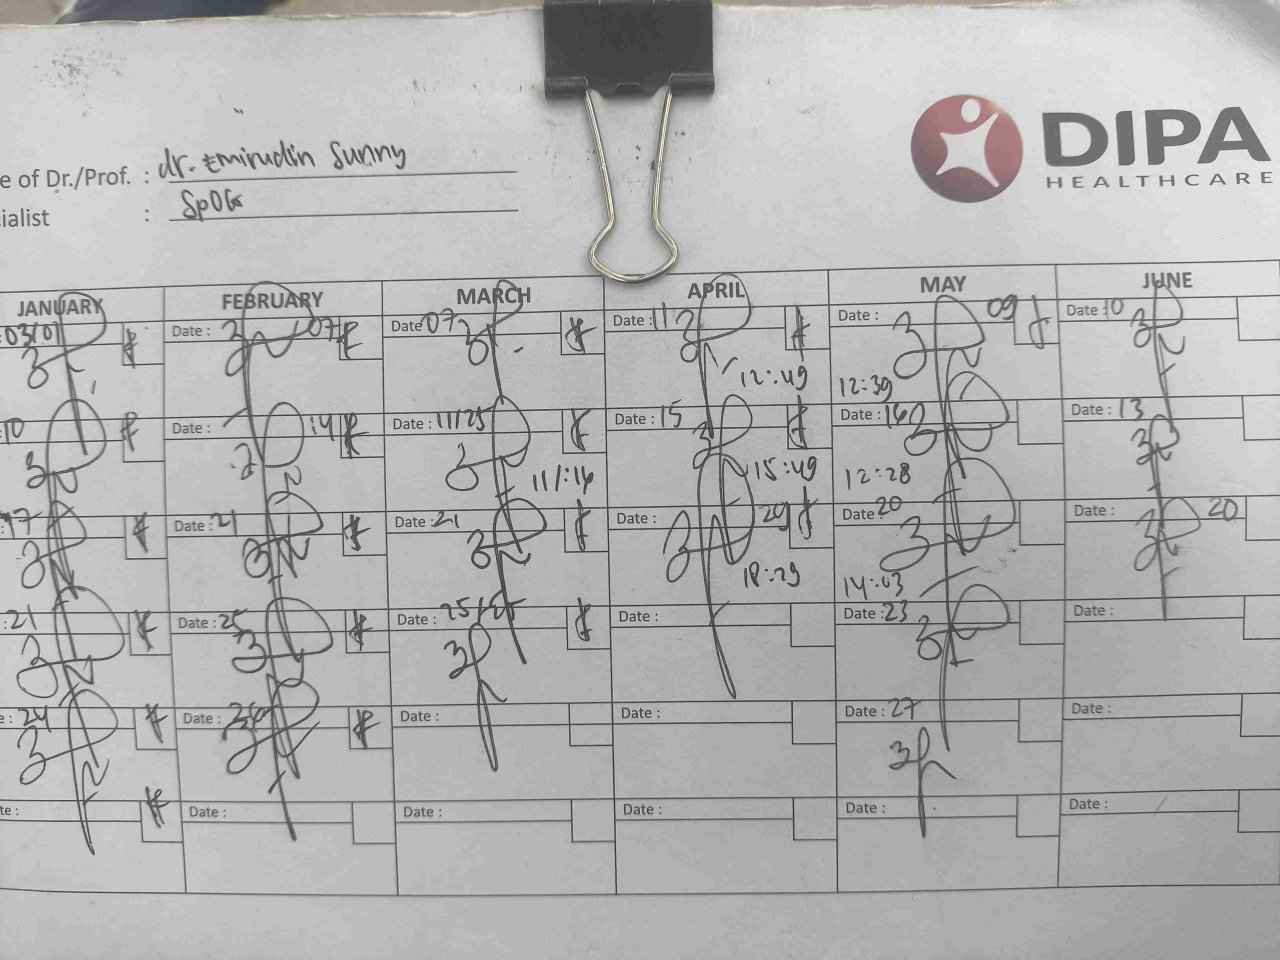 DIPA
HEALTHCARE
e of Dr./Prof. : dr. Emirudin Sunny
ialist : SpOG
JANUARY FEBRUARY MARCH APRIL MAY JUNE
03/01 Date : 07 Date 07 Date : 11 Date : 09 Date : 10
12:49 12:39
10 Date : 14 Date : 11/25 Date : 15 Date : 16 Date : 13
11/:14 15:49 12:28
17 Date : 21 Date : 21 Date : 20 Date : 20 Date : 20
18:29 14:03
: 21 Date : 25 Date : 25 Date : Date : 23 Date :
e : 24 Date : Date : Date : Date : 27 Date :
te : Date : Date : Date : Date : Date :